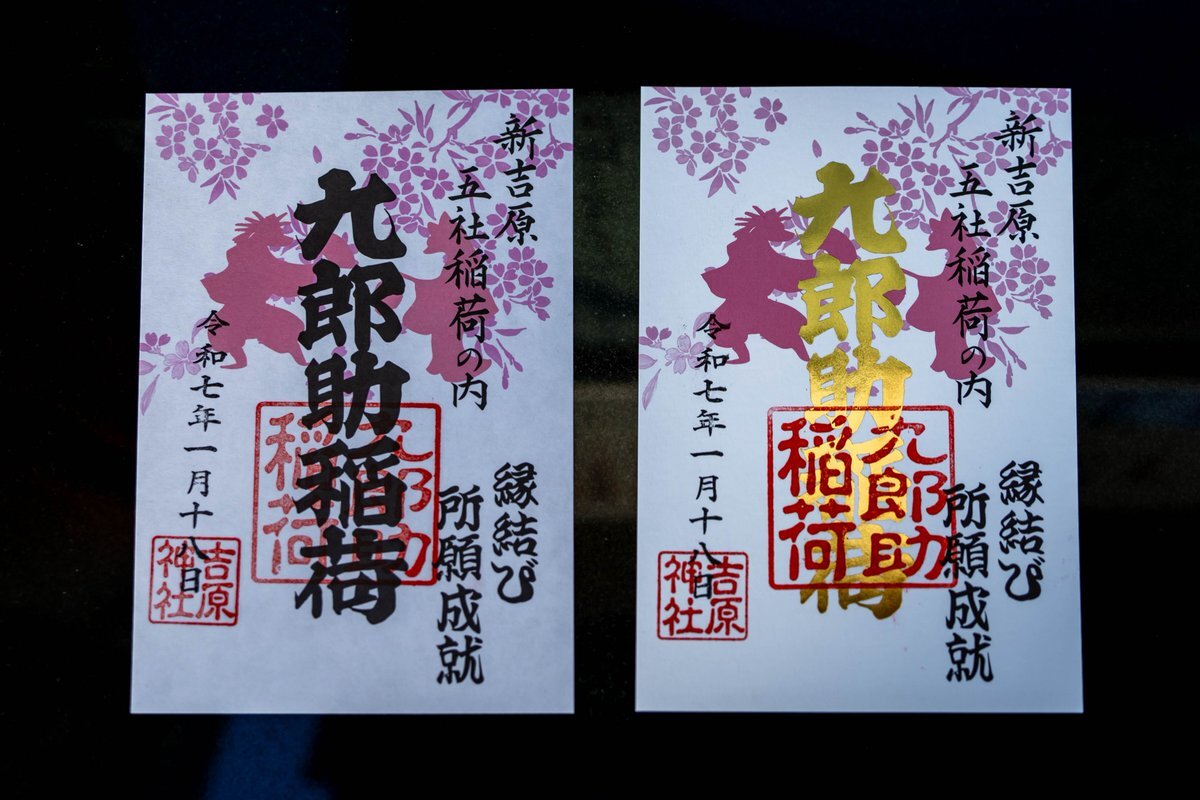 新吉原
五社稲荷の内
縁結び
所願成就
九郎助稲荷
九郎助
稲荷
令和七年一月十八日
吉原
神社
新吉原
五社稲荷の内
縁結び
所願成就
九郎助稲荷
九郎助
稲荷
令和七年一月十八日
吉原
神社